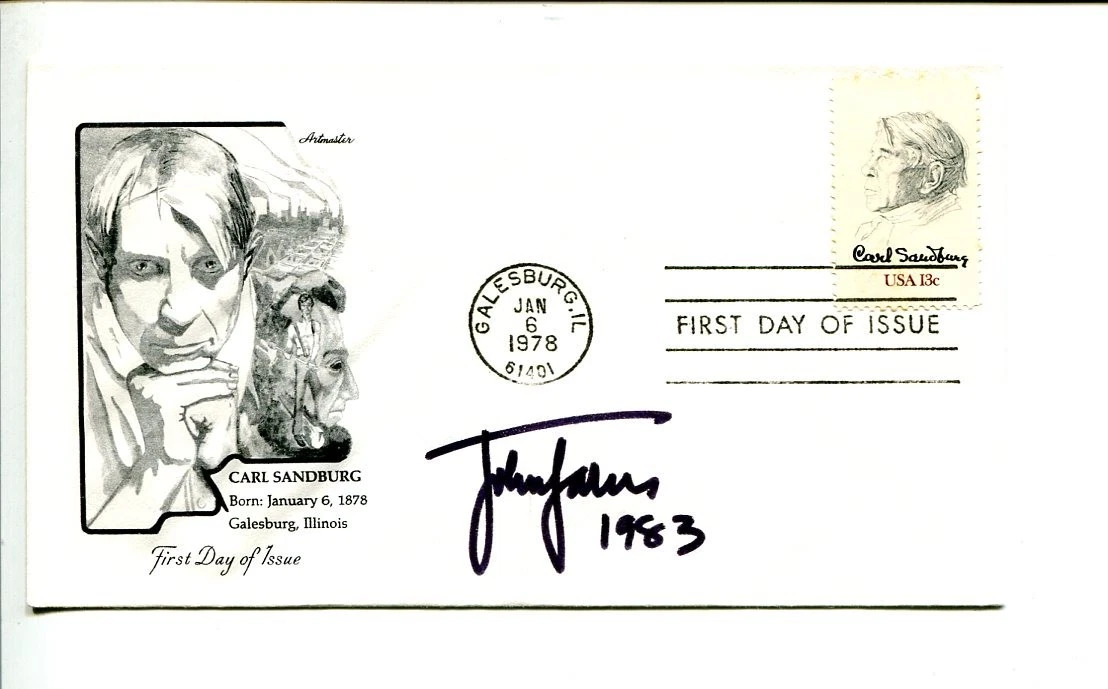 Artmaster
Carl Sandburg
USA 13c
GALESBURG, IL
JAN
6
1978
61401
FIRST DAY OF ISSUE
CARL SANDBURG
Born: January 6, 1878
Galesburg, Illinois
First Day of Issue
John
1983